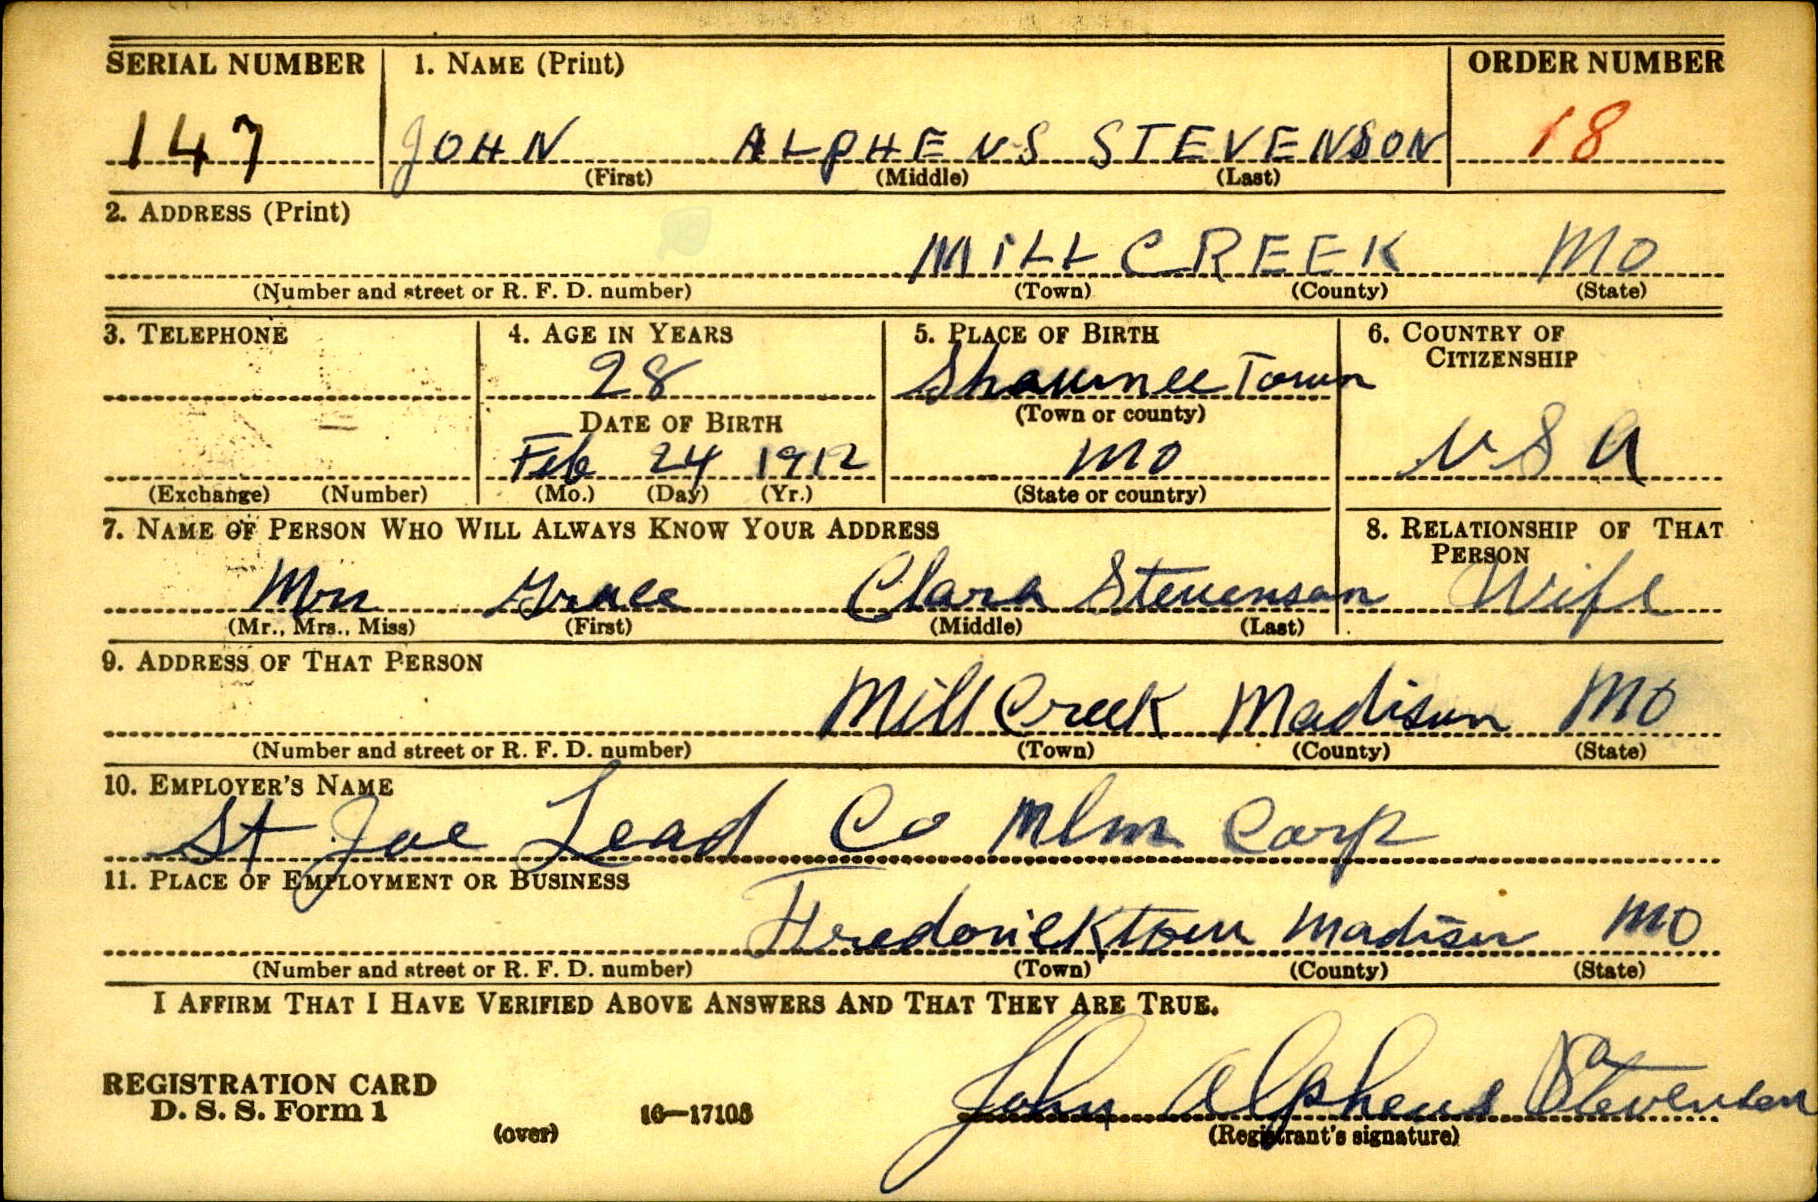 SERIAL NUMBER 1. NAME (Print) ORDER NUMBER
147 JOHN ALPHEUS STEVENSON 18
(First) (Middle) (Last)
2. ADDRESS (Print)
MILL CREEK MO
(Number and street or R. F. D. number) (Town) (County) (State)
3. TELEPHONE 4. AGE IN YEARS 5. PLACE OF BIRTH 6. COUNTRY OF
CITIZENSHIP
28 Shawnee Town
DATE OF BIRTH (Town or county)
Feb 24 1912 MO USA
(Exchange) (Number) (Mo.) (Day) (Yr.) (State or country)
7. NAME OF PERSON WHO WILL ALWAYS KNOW YOUR ADDRESS 8. RELATIONSHIP OF THAT
PERSON
Mrs Grace Clara Stevenson Wife
(Mr., Mrs., Miss) (First) (Middle) (Last)
9. ADDRESS OF THAT PERSON
Mill Creek Madison MO
(Number and street or R. F. D. number) (Town) (County) (State)
10. EMPLOYER'S NAME
St Joe Lead Co Corp
11. PLACE OF EMPLOYMENT OR BUSINESS
Fredericktown Madison MO
(Number and street or R. F. D. number) (Town) (County) (State)
I AFFIRM THAT I HAVE VERIFIED ABOVE ANSWERS AND THAT THEY ARE TRUE.
REGISTRATION CARD
D. S. S. Form 1 John Alpheus Stevenson
(over) 16—17105 (Registrant's signature)